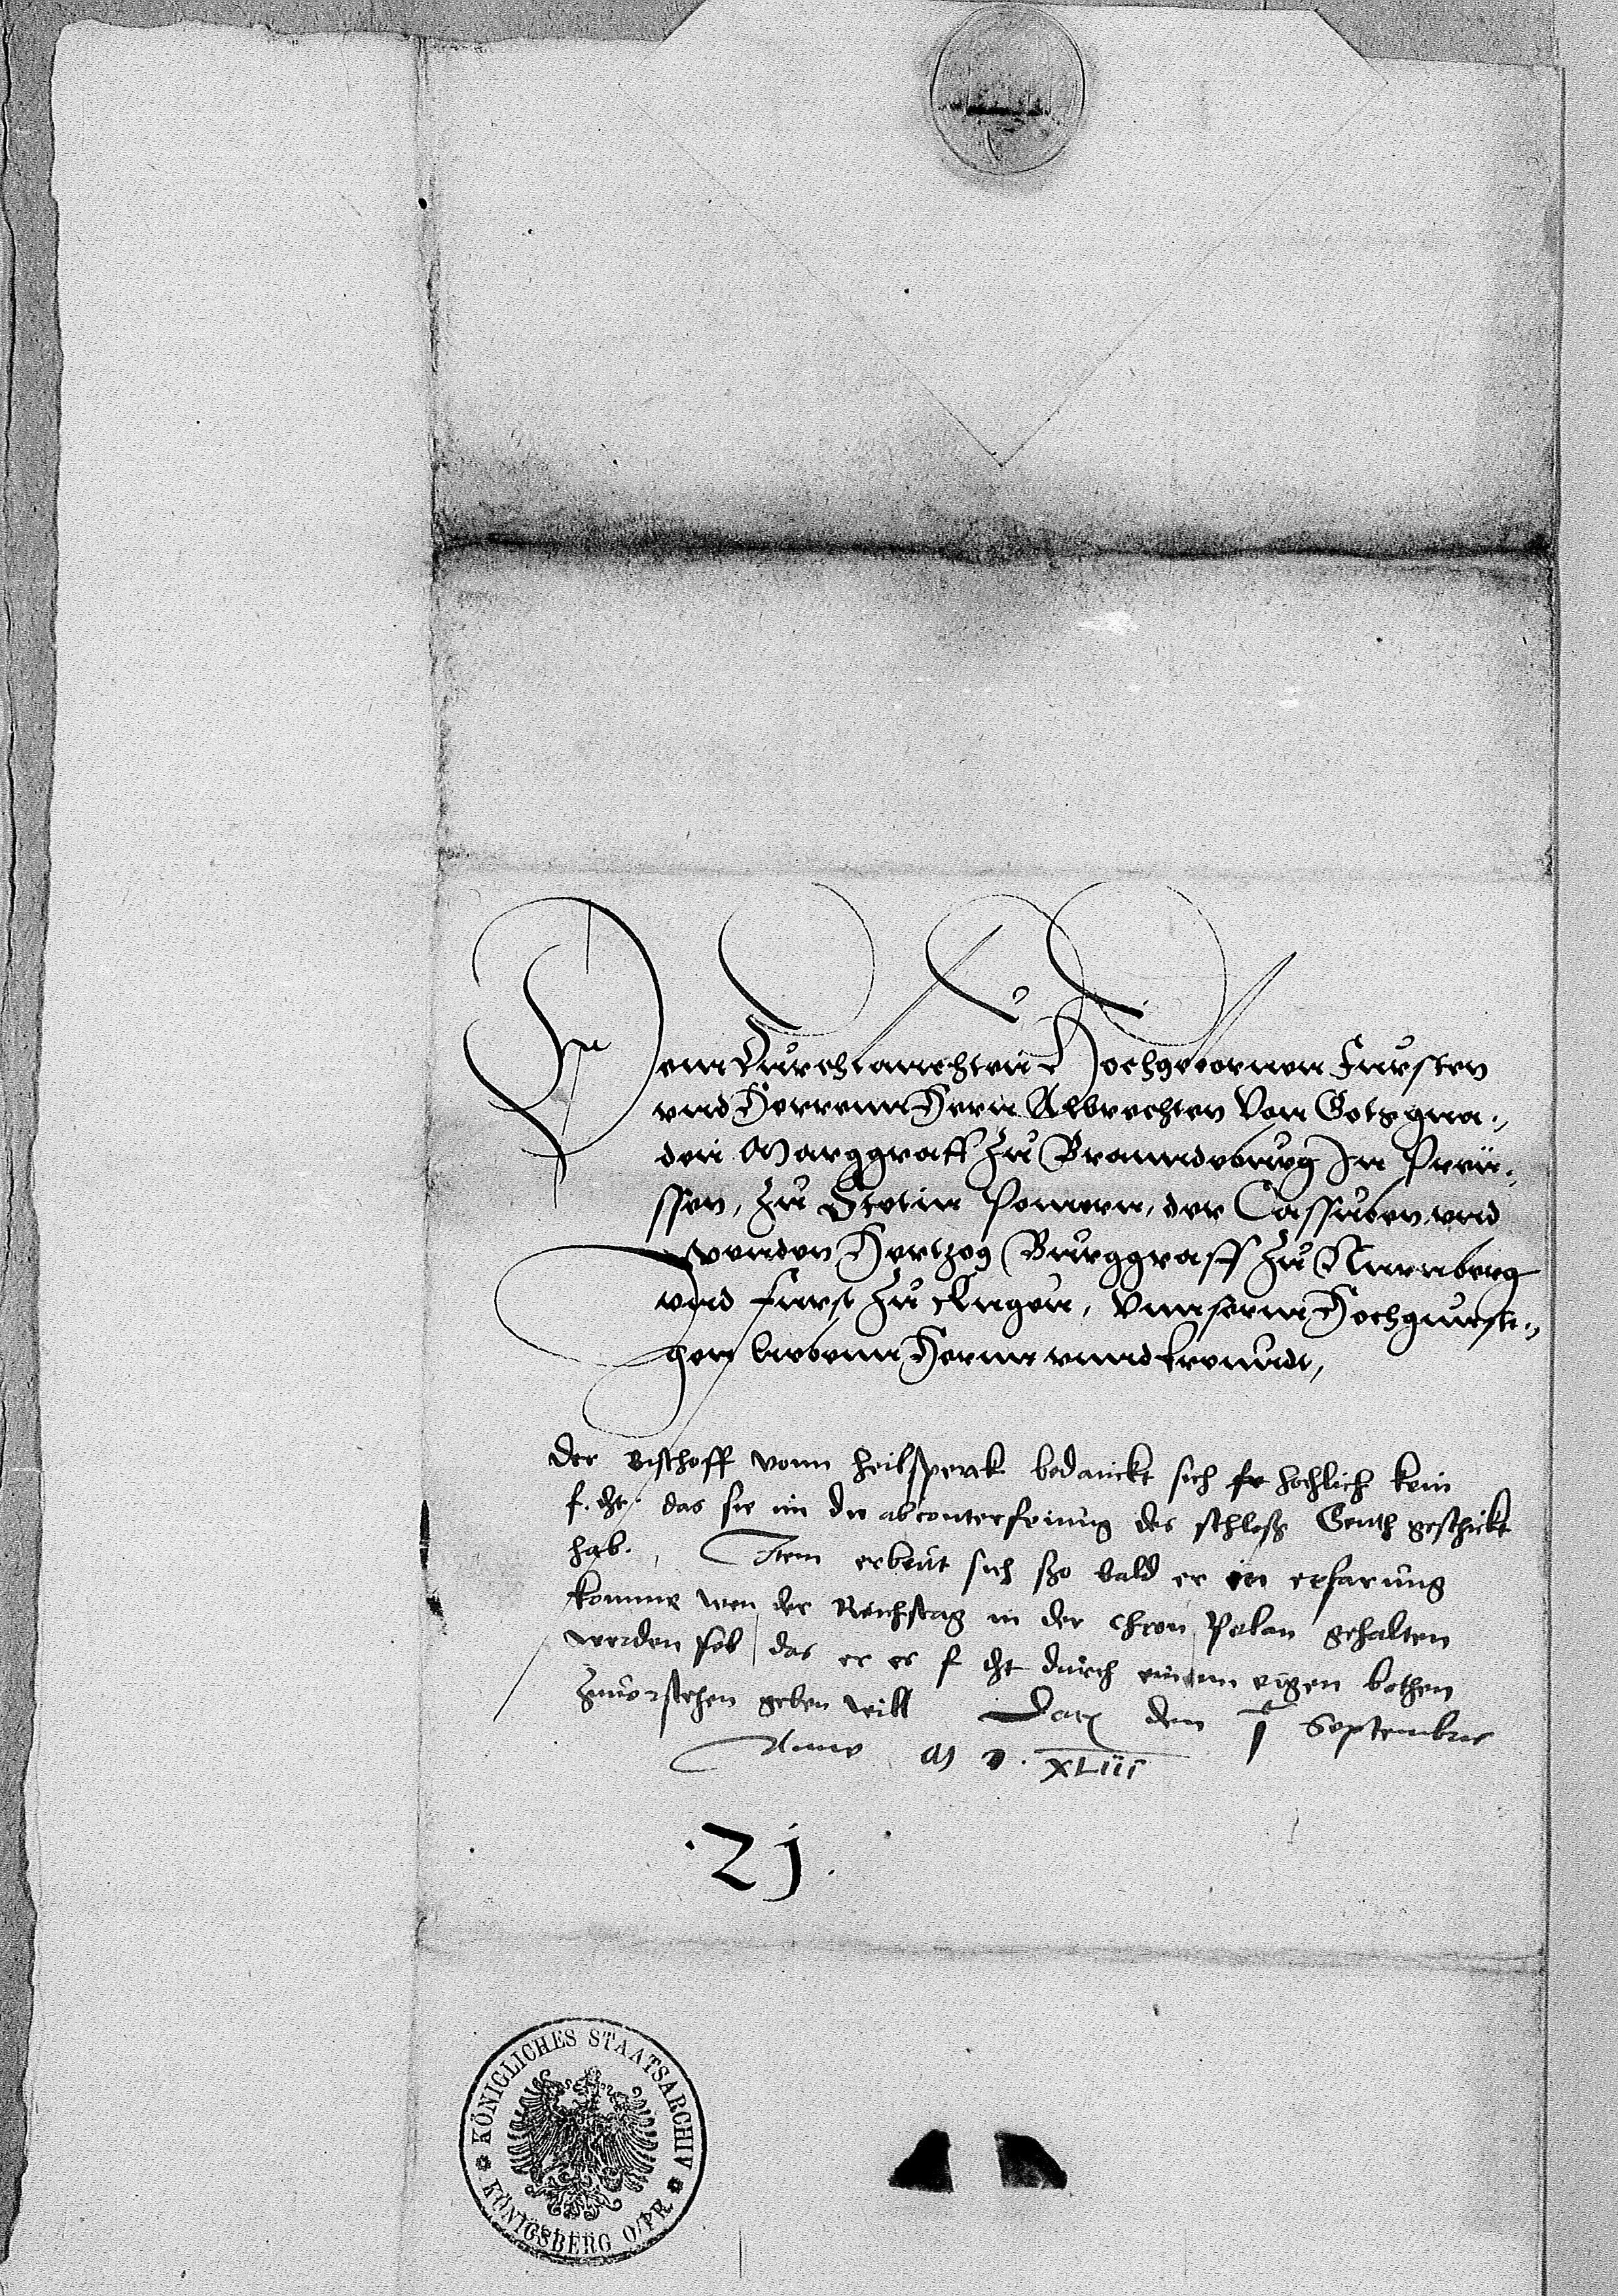 Dem Durchlauchten Hochgebornen Fursten
vnd Herrenn Hern Albrechten Von Gots gna:,
den Marggraff Zu Branndeburg In Preu:,
ssen, Zu Stetin Pomern, der Cassuben vnd
wenden Hertzog Burggraff Zu Nurnberg
vnd furst Zu Rugen, Vnnserm Hochgunsti:,
gen liebenn Hernn vnnd freundt,
der Bischoff vonn heilsperck bedanckt sich hochlich kein
f. dht. das sie im die abconterfeiung des schloß Genth geschickt
hab. Item erbeut sich sso bald er in erfarung
komme wen der Reichstag in der Chron Polan gehalten
werden sol das er es f dht durch einenn eigen bothen
zuuorstehen geben will Datz den Septembris
Anno M D. XLIII
.21.
KÖNIGLICHES STAATSARCHIV
KÖNIGSBERG O/PR